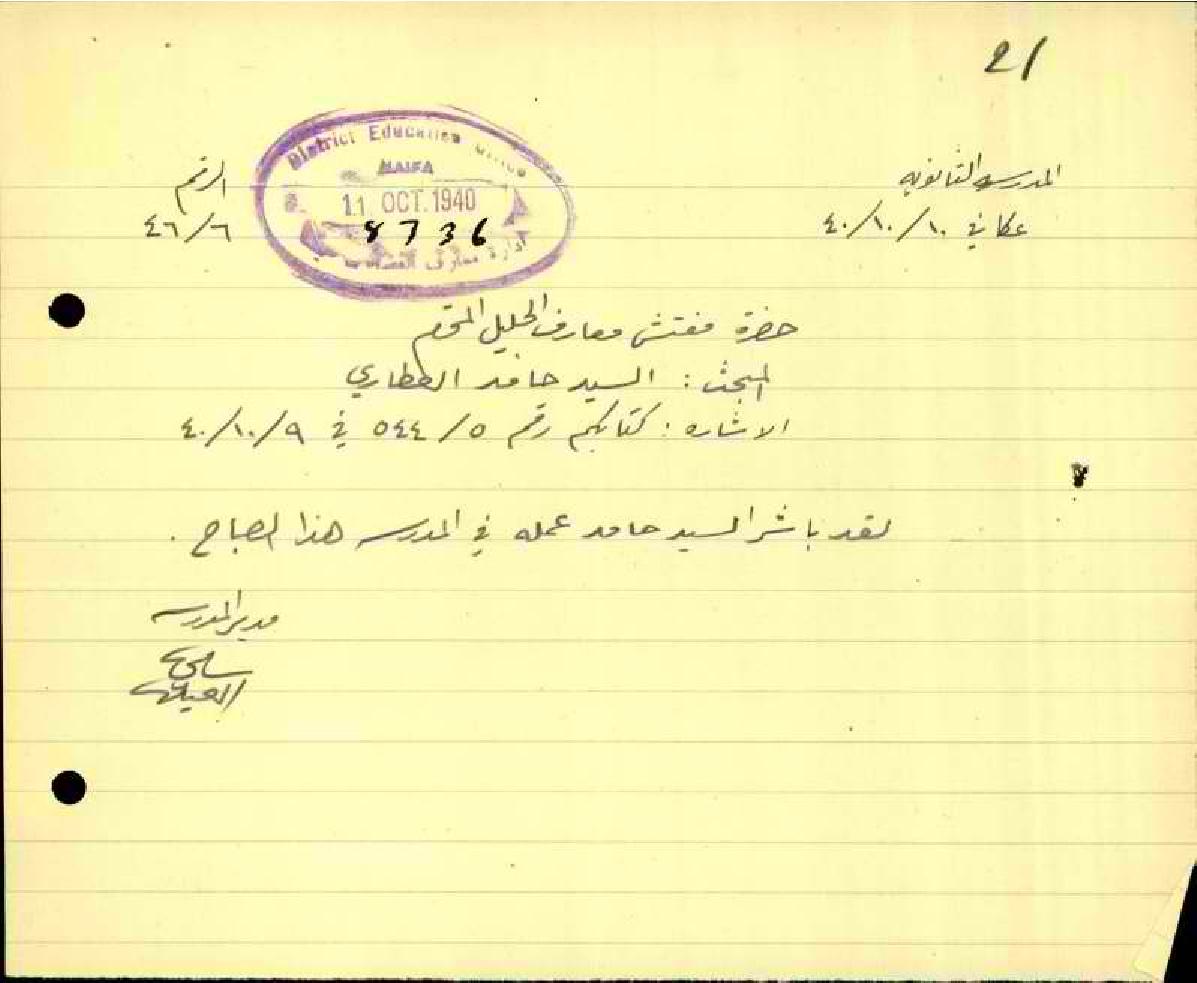 21
المدرسه الثانويه
عكا في ١٠/١٠/٤٠
الرقم
٤٦/٦
District Education Office
HAIFA
11 OCT. 1940
8736
ادارة معارف
حضرة مفتش معارف الجليل المحترم
المبحث: السيد حامد العطاري
الاشاره: كتابكم رقم ٥٤٤/٥ في ٤٠/١٠/٩
لقد باشر السيد حامد عمله في المدرسه هذا الصباح.
مدير المدرسه